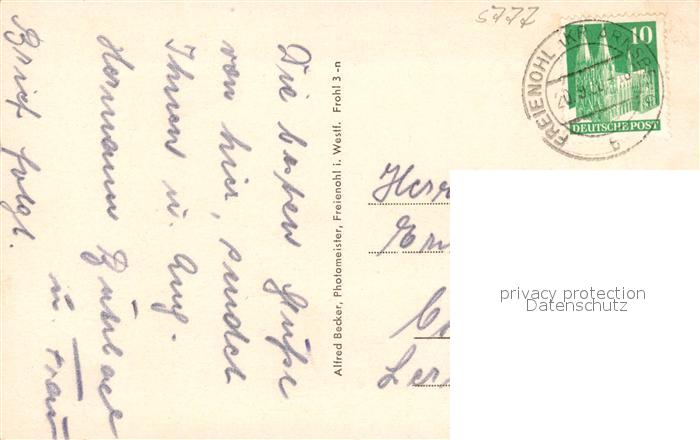 5777
10
DEUTSCHE POST
FREIENOHL
20.9.
b
Die besten Grüße
von hier, sendet
Ihnen u. Ang.
Hermann
u. Frau
Brief folgt.
Alfred Becker, Photomeister, Freienohl i. Westf. Frohl 3-n
Herr
privacy protection
Datenschutz